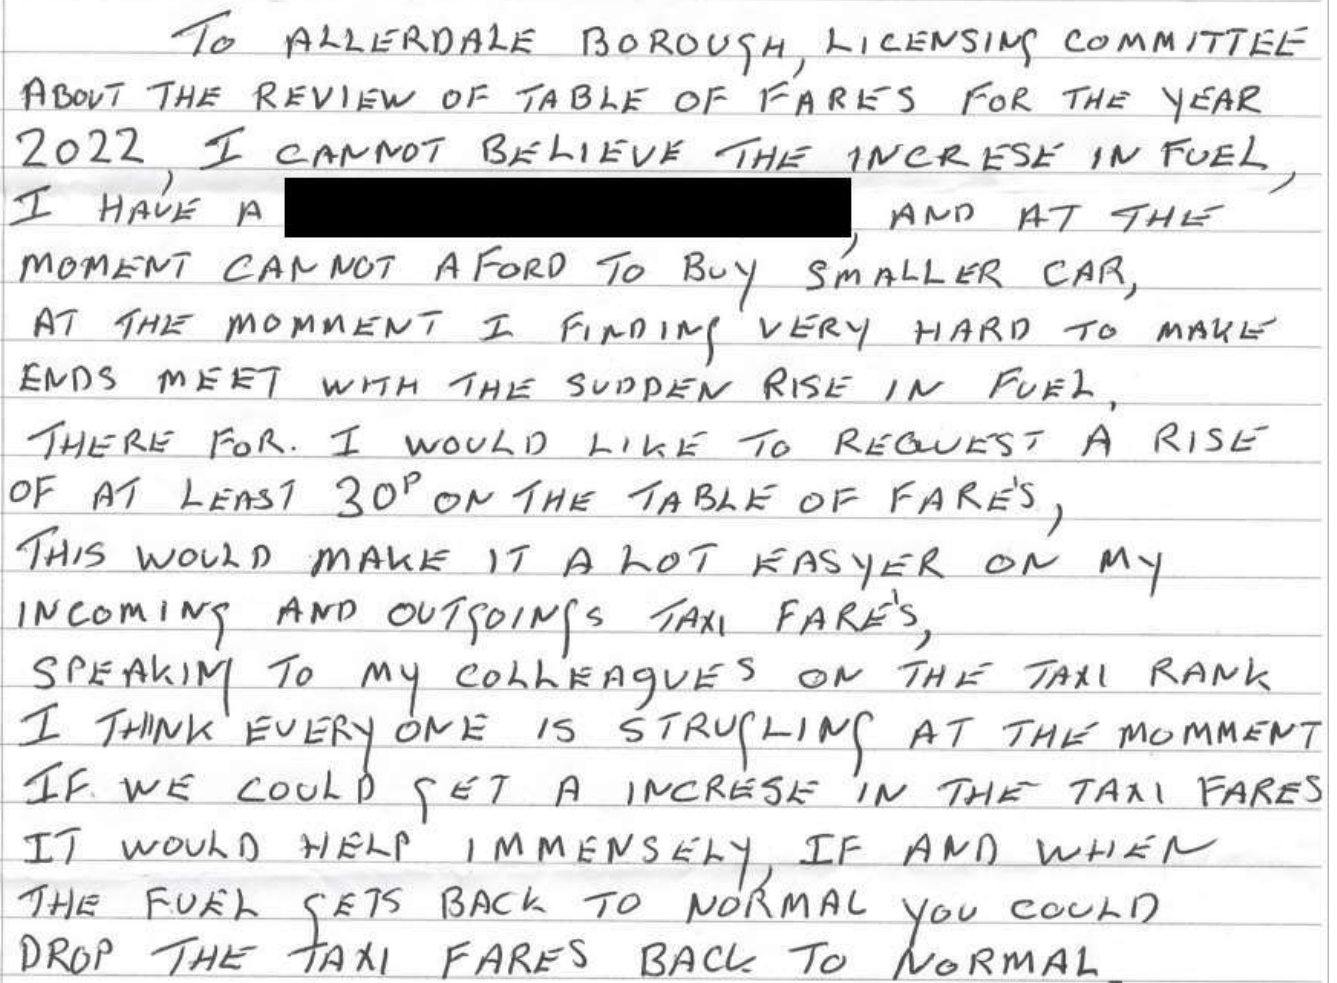 To ALLERDALE BOROUGH, LICENSING COMMITTEE
ABOUT THE REVIEW OF TABLE OF FARES FOR THE YEAR
2022, I CANNOT BELIEVE THE INCRESE IN FUEL,
I HAVE A , AND AT THE
MOMENT CANNOT AFORD TO BUY SMALLER CAR,
AT THE MOMMENT I FINDING VERY HARD TO MAKE
ENDS MEET WITH THE SUDDEN RISE IN FUEL,
THERE FOR. I WOULD LIKE TO REQUEST A RISE
OF AT LEAST 30P ON THE TABLE OF FARE'S,
THIS WOULD MAKE IT A LOT EASYER ON MY
INCOMING AND OUTGOINGS TAXI FARE'S,
SPEAKING TO MY COLLEAGUES ON THE TAXI RANK
I THINK EVERYONE IS STRUGLING AT THE MOMMENT
IF. WE COULD GET A INCRESE IN THE TAXI FARES
IT WOULD HELP IMMENSELY, IF AND WHEN
THE FUEL GETS BACK TO NORMAL YOU COULD
DROP THE TAXI FARES BACK TO NORMAL.